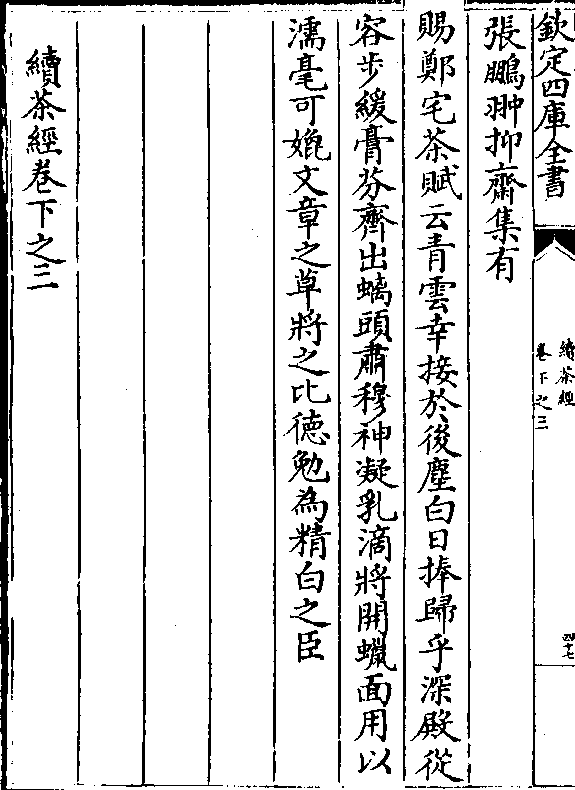 欽定四庫全書
續茶經
卷下之三
四十七
張鵬翀抑齋集有
賜鄭宅茶賦云青雲幸接於後塵白日捧歸乎深殿從
容步緩膏芬齊出螭頭肅穆神凝乳滴將開蠟面用以
濡毫可媲文章之草將之比德勉為精白之臣
續茶經卷下之三